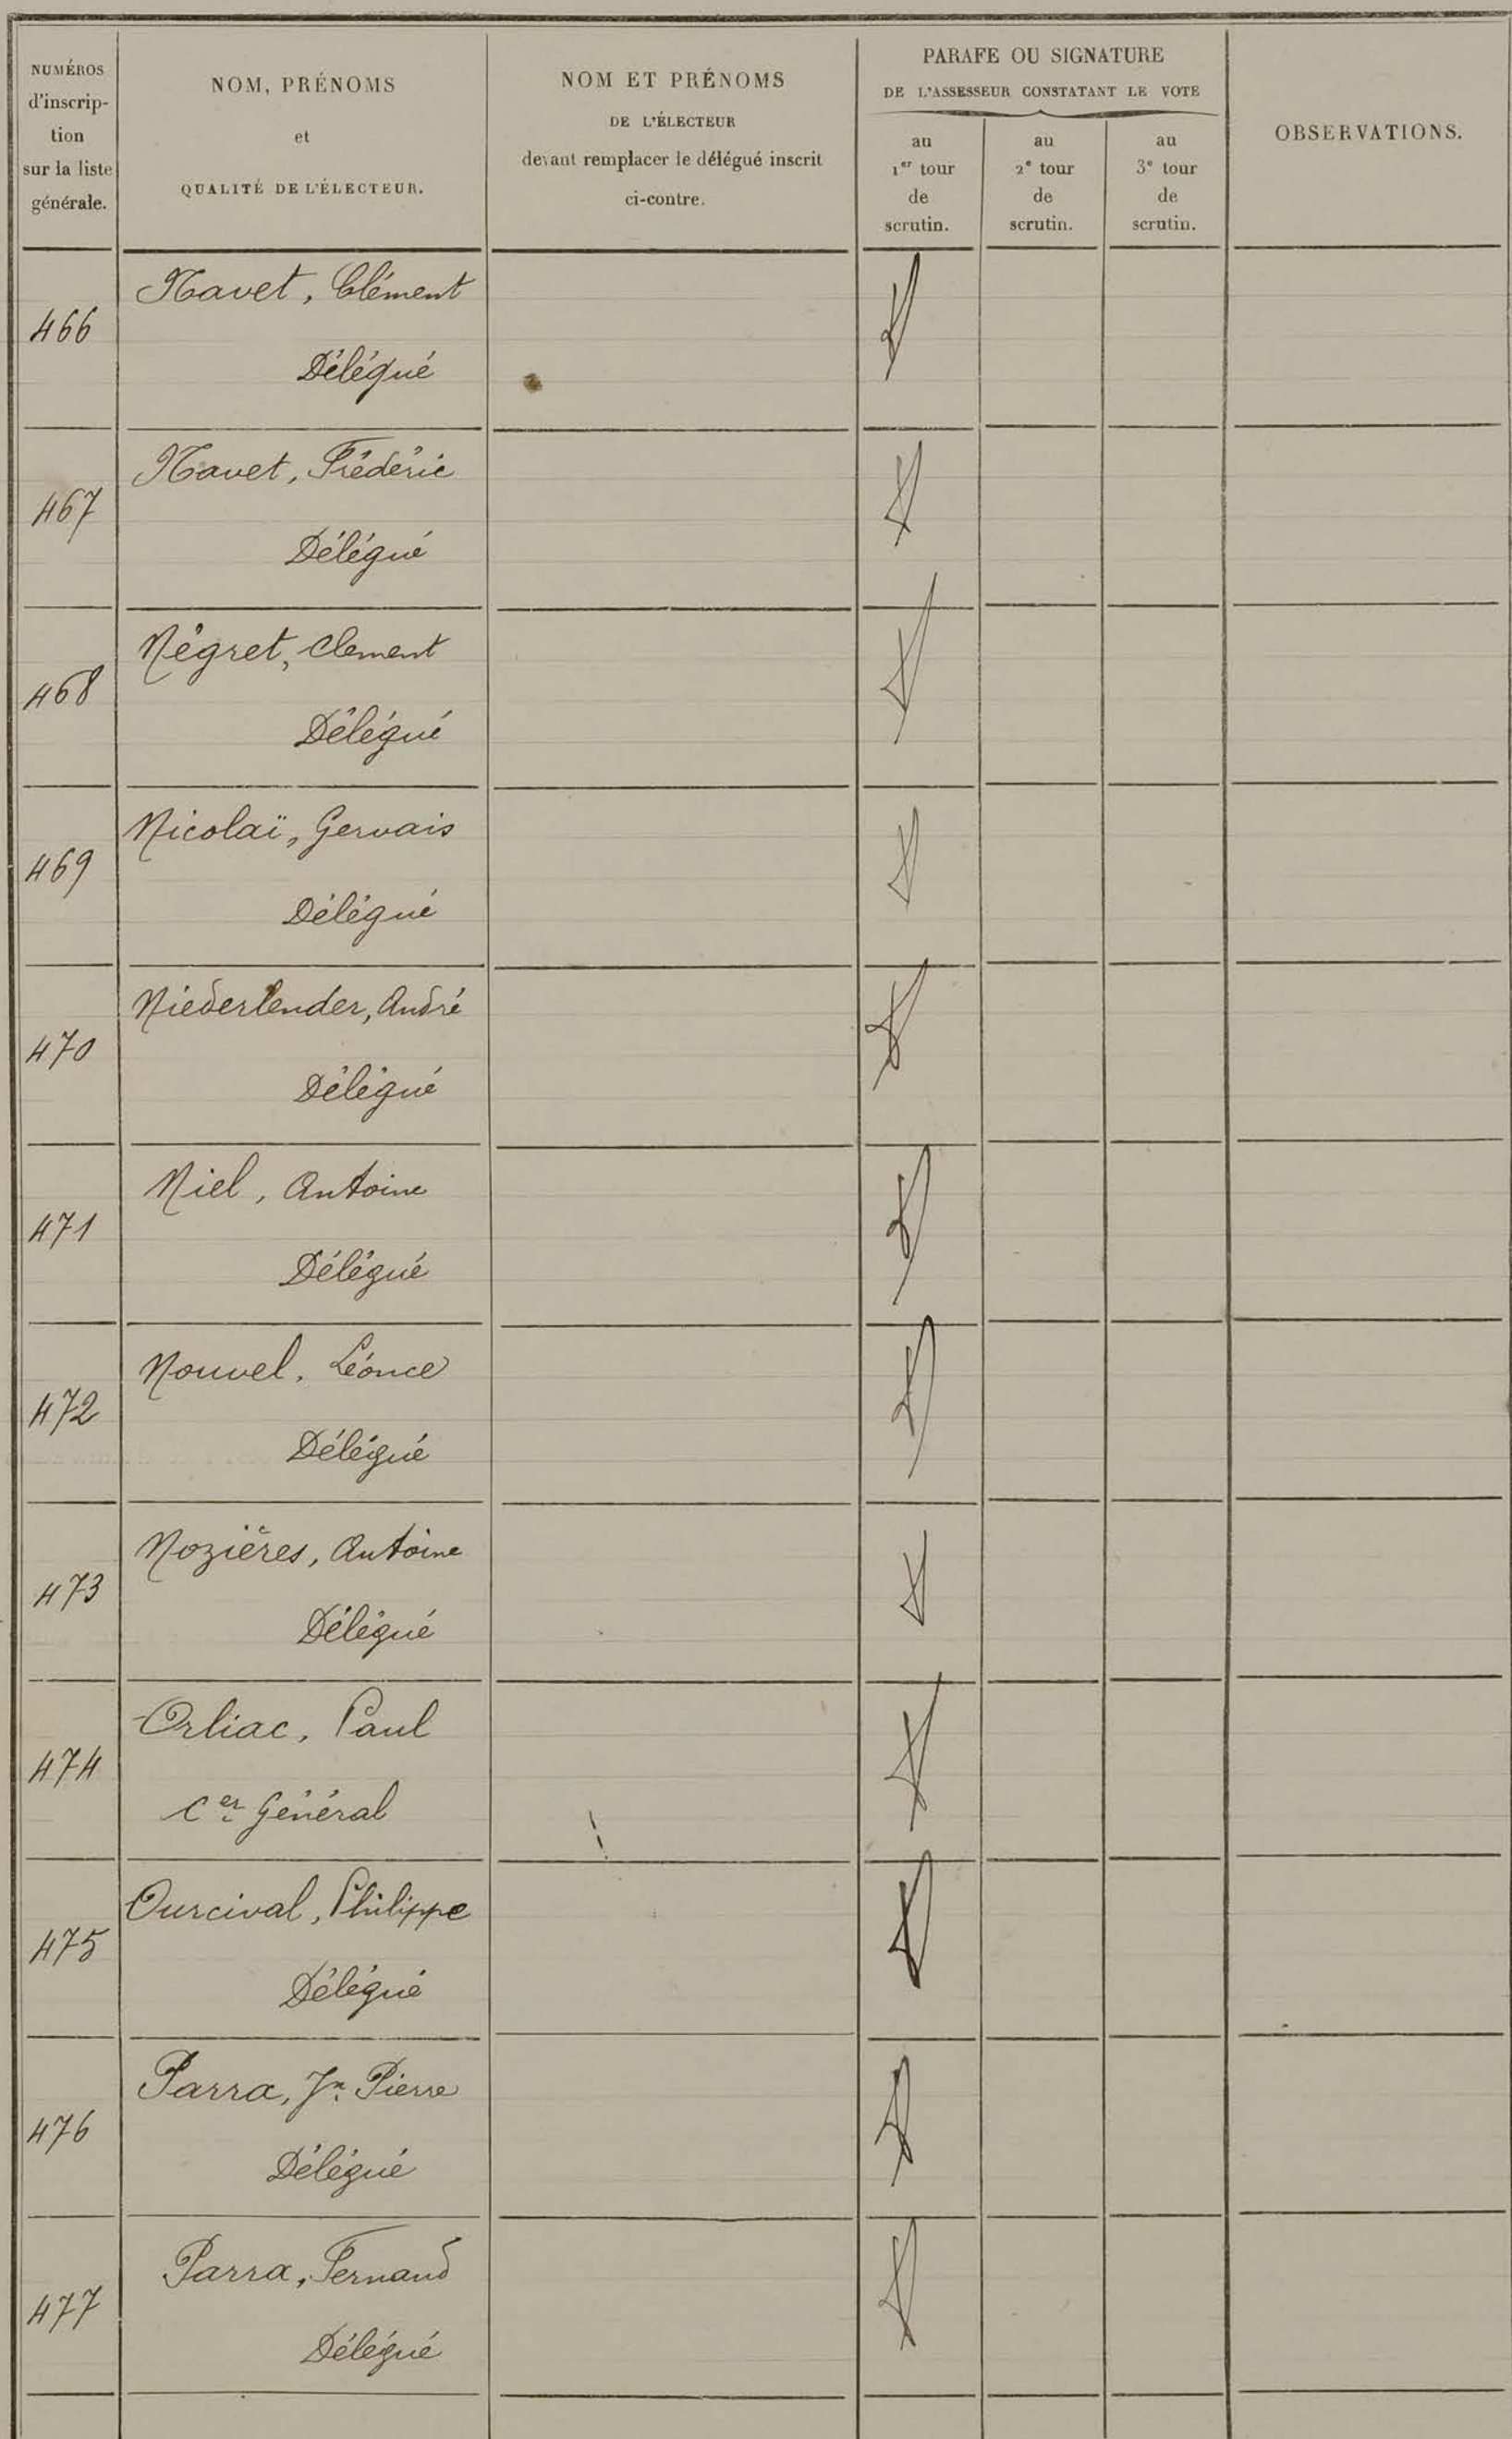 NUMÉROS
d'inscrip-
tion
sur la liste
générale.
NOM, PRÉNOMS
et
QUALITÉ DE L'ÉLECTEUR.
NOM ET PRÉNOMS
DE L'ÉLECTEUR
devant remplacer le délégué inscrit
ci-contre.
PARAFE OU SIGNATURE
DE L'ASSESSEUR CONSTATANT LE VOTE
au
1er tour
de
scrutin.
au
2e tour
de
scrutin.
au
3e tour
de
scrutin.
OBSERVATIONS.
466
Navet, Clément
Délégué
467
Navet, Frédéric
Délégué
468
Négret, Clement
Délégué
469
Nicolaï, Gervais
Délégué
470
Niederlender, André
Délégué
471
Niel, Antoine
Délégué
472
Nouvel, Léonce
Délégué
473
Nozières, Antoine
Délégué
474
Orliac, Paul
Cer Général
475
Ourcival, Philippe
Délégué
476
Parra, Jn Pierre
Délégué
477
Parra, Fernand
Délégué